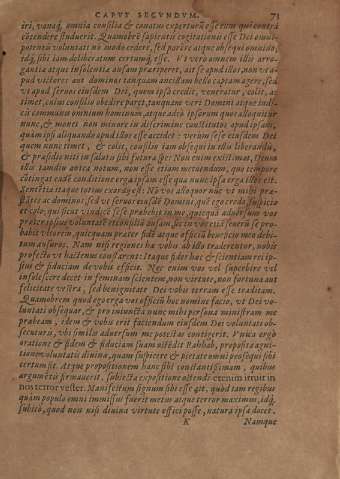 CAPVT SECVNDVM. 71
iri, vanaq́, omnia consilia & conatus expertum esse eum qui contrà
cõtendere studuerit. Quamobrẽ sapiẽtis cogitationis esse Dei omni-
potenti voluntati nõ modò cedere, sed parêre atque obsequi omnino,
idq́, sibi iam deliberatum certumq́ esse. Vt verò omnem illis arro-
gantia atque insolentia ausam præriperet, ait se apud illos, non vera-
pud victores aut dominos tanquam ancillam bello captam agere, sed
vt apud seruos eiusdem Dei, quem ipsa credit, veneratur, colit, ac
timet, cuius consilio obedire paret, tanquam veri Domini atque iudi-
cis communis omnium hominum, atque adeò ipsorum quos alloquitur
nunc, & monet non minore in discrimine constitutos apud ipsam,
quàm ipsi aliquando apud illos esse
quem nunc timet, & colit, consilio iam obsequi in illis liberandis,
& præsidio niti in salutis sibi futura spe: Non enim existimat, Deum
illis iamdiu antea notum, non esse etiam metuendum, quo tempore
cõtingat eadẽ conditione erga ipsam esse qua nunc ipsa erga illos est.
Sententia itaque totius exordij est: Nõ vos alloquor nũc vt mihi præ-
stites ac dominos, sed vt seruos eiusdẽ Domini, quẽ ego credo, suspicio
et colo; qui sicut vindicẽ sese præbebit in me, quicquã aduersum vos
præter ipsius voluntatẽ et consiliũ ausam, sic in vos etiã seuerũ se pro-
babit vltorem, quicquam præter fidẽ atque officiũ beneficio meo debi-
tum ausuros. Nam nisi regiones hæ vobis ab illo traderentur, nobis
profectò vt hactenus constarent: Itaque fidem hac & scientiam rei ip-
sius & fiduciam de vobis efficit. Nec enim vos vel superbire vel
insolescere decet in feminam clientem, non virtute, non fortuna aut
felicitate vestra, sed benignitate Dei vobis terram esse traditam.
Quamobrem quod ego erga vos officiũ hoc nomine facio, vt Dei vo-
luntati obsequar, & pro iniuncta nunc mihi persona ministram me
præbeam, idem & vobis erit faciendum eiusdem Dei voluntati ob-
secuturis, vbi similis aduersum me potestas contigerit. Vnica ergò
oratione & fidem & fiduciam suam ostẽdit Rahhab, proposita agni-
tione voluntatis diuinæ, quam suspicere & pietate omni prosequi sibi
certum sit. Atque propositionem hanc sibi constantissimam, quibus
argumẽtis firmauerit, subiecta expositione ostendit: etenim irruit in
nos terror vester. Manifestum signum sibi esse ait, quòd tam regibus
quàm populo omni immissus fuerit metus atque terror maximus, idq́,
subitò, quod non nisi diuina virtute effici posse, natura ipsa docet.
K Namque